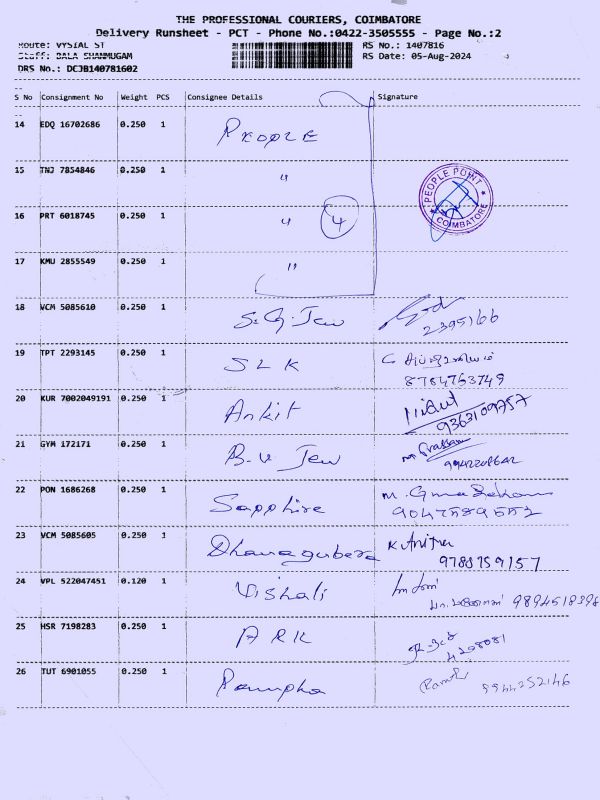 THE PROFESSIONAL COURIERS, COIMBATORE
Delivery Runsheet - PCT - Phone No.:0422-3505555 - Page No.:2
Route: VYSIAL ST RS No.: 1407816
Staff: BALA SHANMUGAM RS Date: 05-Aug-2024
DRS No.: DCJB140781602
S No Consignment No Weight PCS Consignee Details Signature
14 EDQ 16702686 0.250 1 PEOPLE
15 TNJ 7854846 0.250 1 "
PEOPLE POINT COIMBATORE
16 PRT 6018745 0.250 1 " 4
17 KMU 2855549 0.250 1 "
18 VCM 5085610 0.250 1 S.G. Jew
2395166
19 TPT 2293145 0.250 1 SLK
8784763749
20 KUR 7002049191 0.250 1 Ankit
9363109757
21 GYM 172171 0.250 1 B.V Jew
22 PON 1686268 0.250 1 Sapphire
9047589552
23 VCM 5085605 0.250 1 Dhanagubera K. Anitha
9788759157
24 VPL 522047451 0.120 1 Vishali
9894518398
25 HSR 7198283 0.250 1 ARK
4208081
26 TUT 6901055 0.250 1 Pampha
9944252146